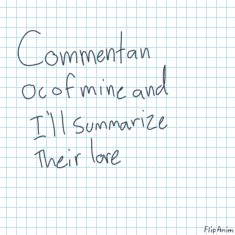 Comment an
oc of mine and
I'll summarize
Their lore
FlipAnim